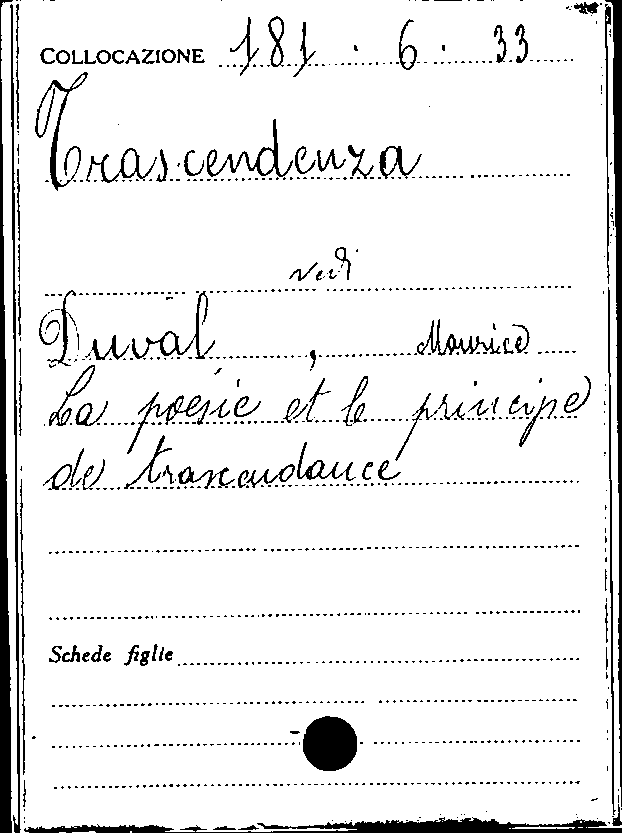 COLLOCAZIONE 181 . 6 . 33
Trascendenza
vedi
Duval, Maurice
La poésie et le principe
de trascendance
Schede figlie